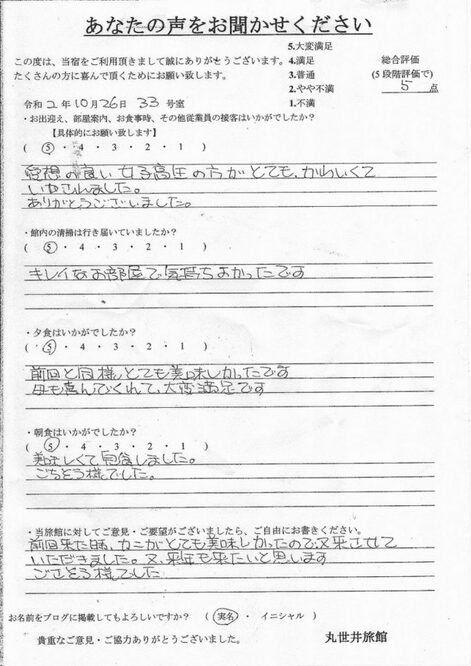 あなたの声をお聞かせください
この度は、当宿をご利用頂きまして誠にありがとうございます。
たくさんの方に喜んで頂くためにお願い致します。
5.大変満足
4.満足
3.普通
2.やや不満
1.不満
総合評価
(5段階評価で)
5 点
令和2年10月26日 33号室
・お出迎え、部屋案内、お食事時、その他従業員の接客はいかがでしたか？
【具体的にお願い致します】
( ⑤ ・ 4 ・ 3 ・ 2 ・ 1 )
の良い女子高生の方がとても、かわいくて
いやされました。
ありがとうございました。
・館内の清掃は行き届いていましたか？
( ⑤ ・ 4 ・ 3 ・ 2 ・ 1 )
キレイなお部屋で気持ちよかったです
・夕食はいかがでしたか？
( ⑤ ・ 4 ・ 3 ・ 2 ・ 1 )
前回と同様、とても美味しかったです
母も喜んでくれて、大変満足です
・朝食はいかがでしたか？
( ⑤ ・ 4 ・ 3 ・ 2 ・ 1 )
美味しくて完食しました。
ごちそう様でした。
・当旅館に対してご意見・ご要望がございましたら、ご自由にお書きください。
前回来た時、カニがとても美味しかったので又来させて
いただきました。又、来年も来たいと思います
ごちそう様でした
お名前をブログに掲載してもよろしいですか？ ( 実名 ・ イニシャル )
貴重なご意見・ご協力ありがとうございました。
丸世井旅館